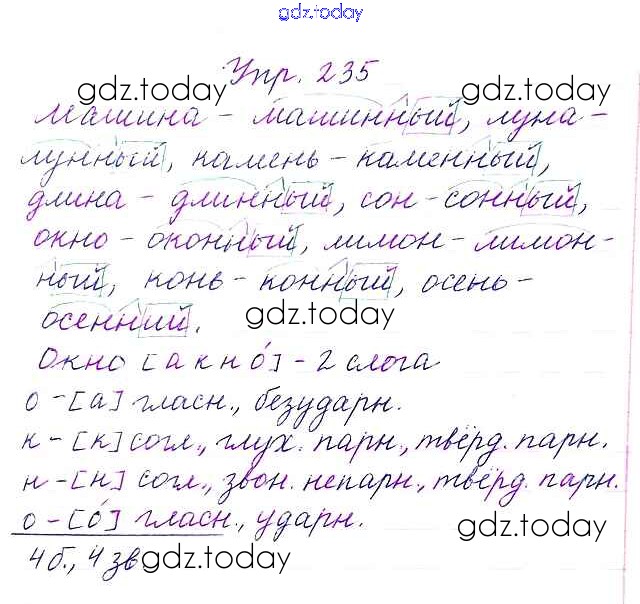 gdz.today
Упр. 235
gdz.today gdz.today
Машина - машинный, луна -
лунный, камень - каменный,
длина - длинный, сон - сонный,
окно - оконный, лимон - лимон-
ный, конь - конный, осень -
осенний.
gdz.today
Окно [акно́] - 2 слога
о - [а] гласн., безударн.
к - [к] согл., глух. парн., твёрд. парн.
н - [н] согл., звон. непарн., твёрд. парн.
о - [о́] гласн., ударн.
gdz.today
4 б., 4 зв
gdz.today